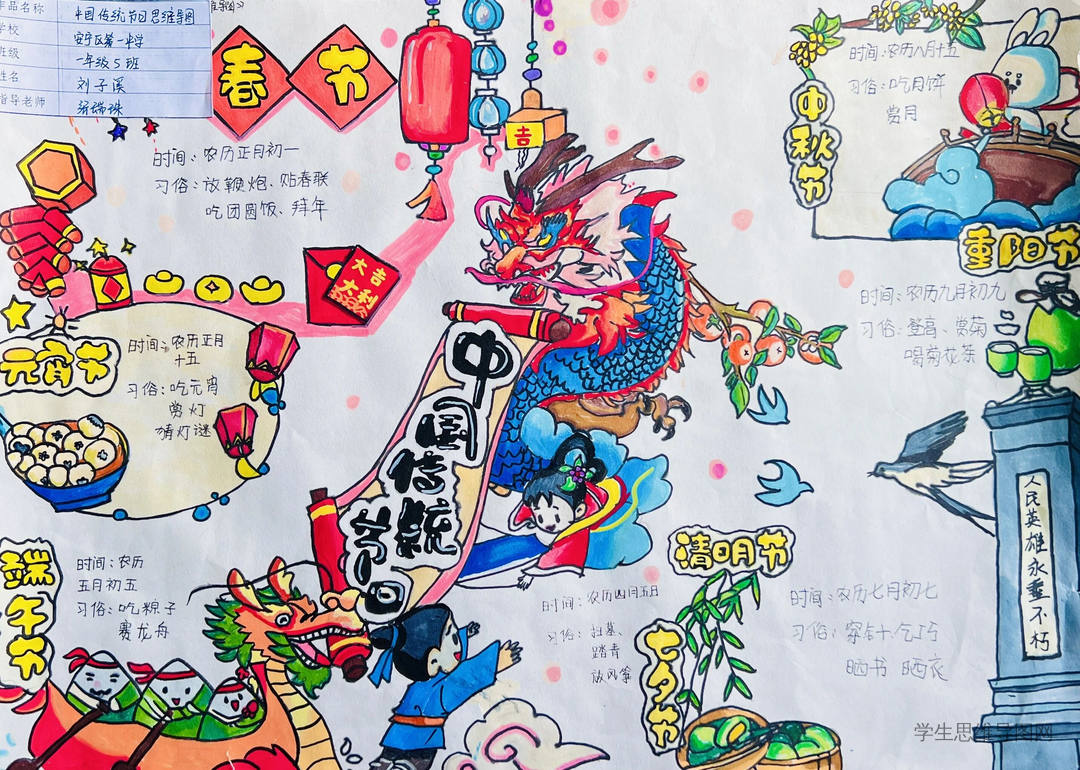 作品名称 中国传统节日思维导图
学校 安宁区第一中学
班级 一年级5班
姓名 刘子溪
指导老师
春节
时间：农历正月初一
习俗：放鞭炮、贴春联
吃团圆饭、拜年
吉
大吉
大利
元宵节
时间：农历正月
十五
习俗：吃元宵
赏灯
猜灯谜
中国传统节日
端午节
时间：农历
五月初五
习俗：吃粽子
赛龙舟
中秋节
时间：农历八月十五
习俗：吃月饼
赏月
重阳节
时间：农历九月初九
习俗：登高、赏菊
喝菊花茶
清明节
时间：农历四月五日
习俗：扫墓、
踏青
放风筝
七夕节
时间：农历七月初七
习俗：穿针乞巧
晒书 晒衣
人民英雄永垂不朽
学生思维导图网